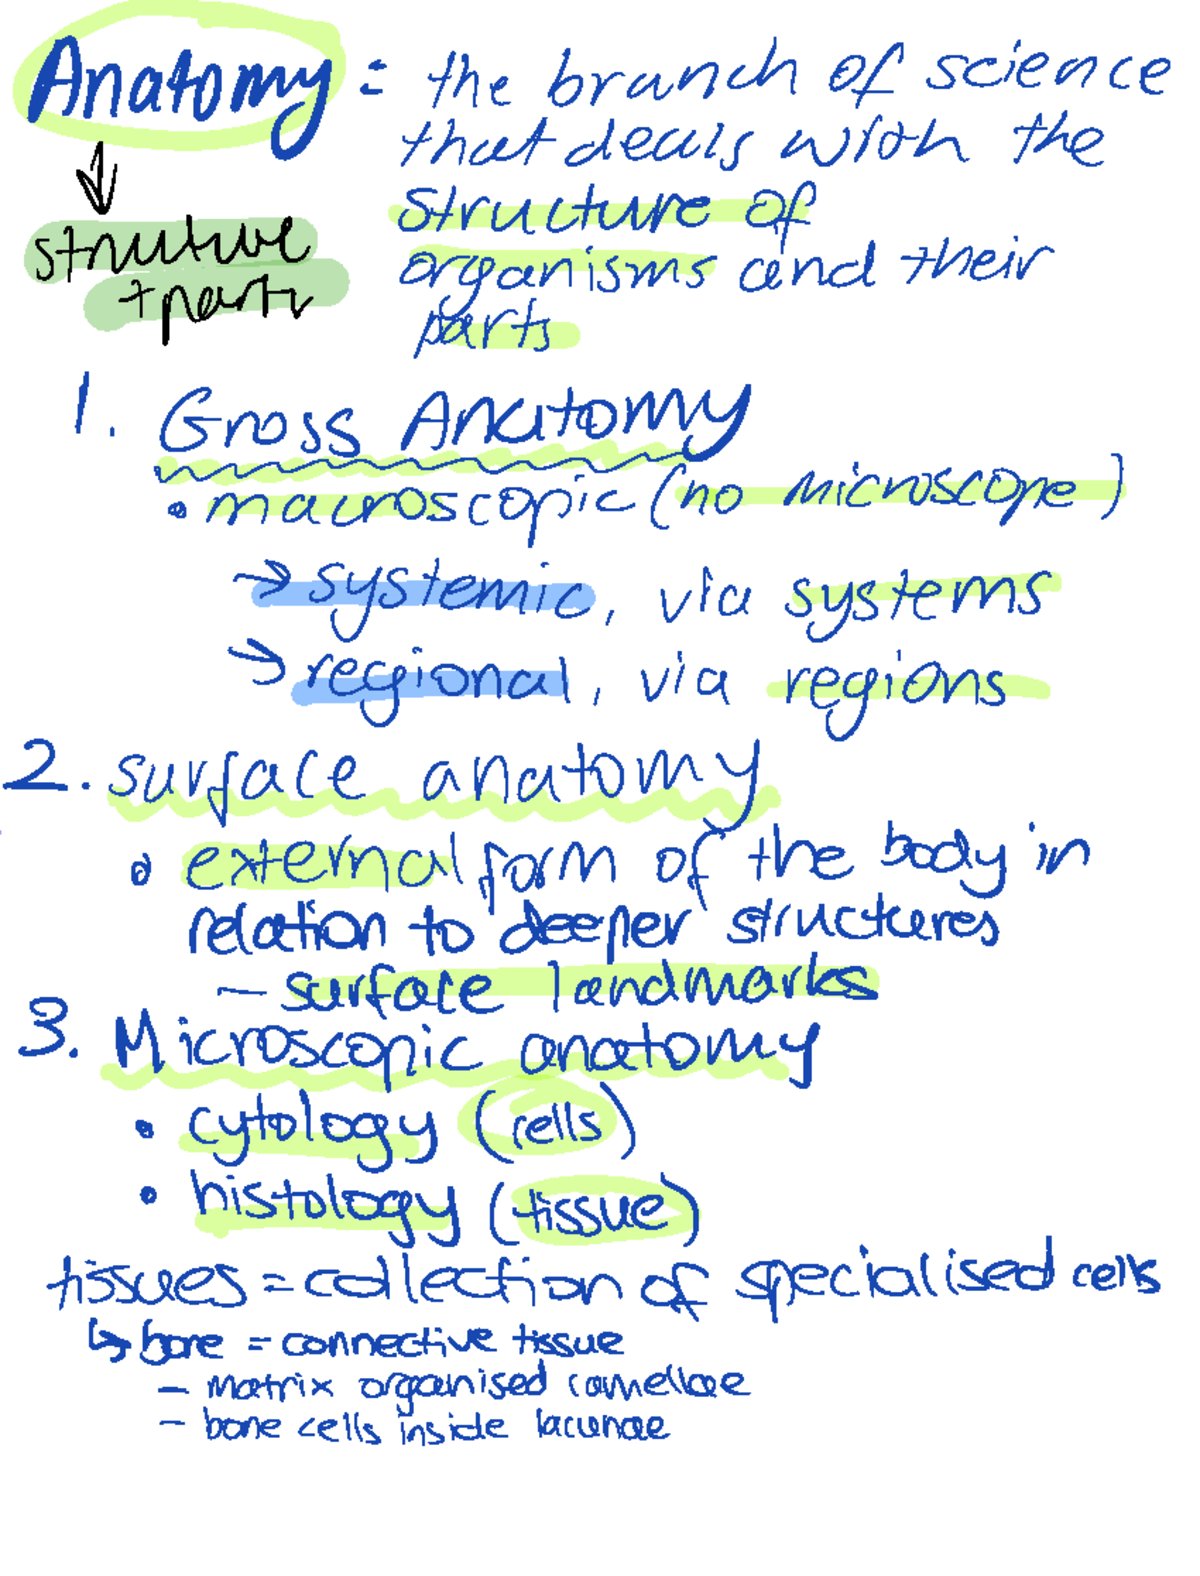 Anatomy = the branch of science
that deals with the
structure of
organisms and their
parts
↓
structure
+ parts
1. Gross Anatomy
• macroscopic (no microscope)
→ systemic, via systems
→ regional, via regions
2. surface anatomy
• external form of the body in
relation to deeper structures
- surface landmarks
3. Microscopic anatomy
• cytology (cells)
• histology (tissue)
tissues = collection of specialised cells
↳ bone = connective tissue
- matrix organised camellae
- bone cells inside lacunae